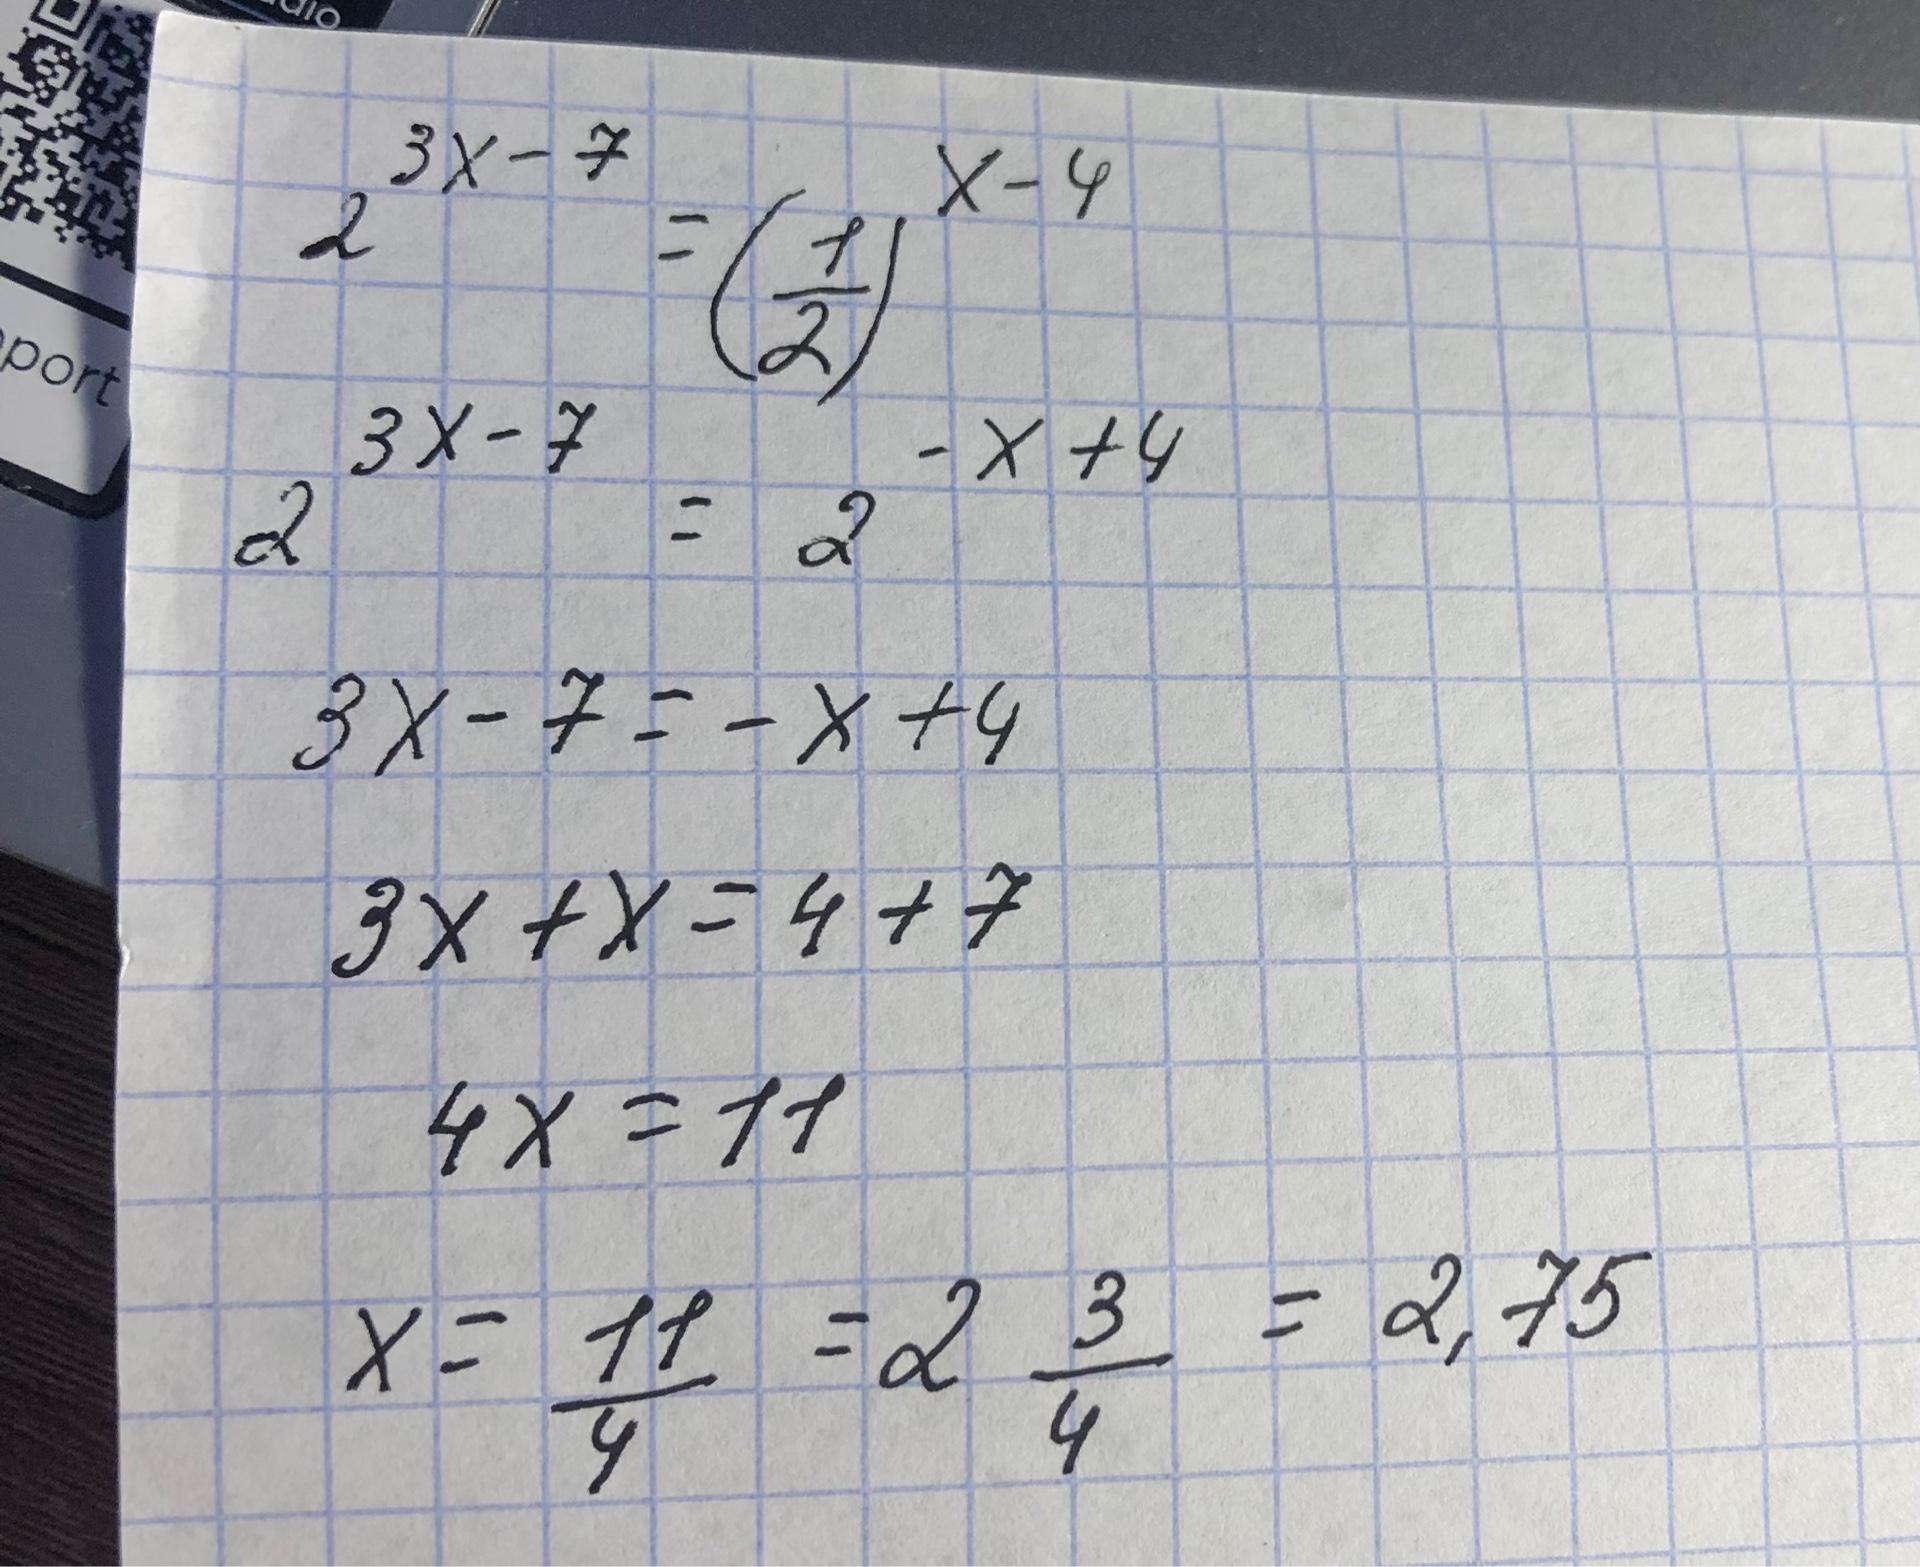 dio
port
2^{3x-7} = (1/2)^{x-4}
2^{3x-7} = 2^{-x+4}
3x-7=-x+4
3x+x=4+7
4x=11
x= 11/4 =2 3/4 = 2,75